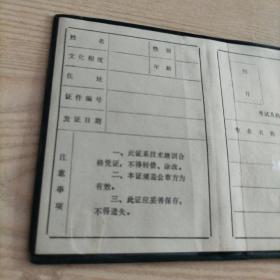 姓名 性别
文化程度 年龄
住址
证件编号
发证日期
注意事项
一、此证系技术培训合
格凭证，不得转借、涂改。
二、本证须盖公章方为
有效。
三、此证应妥善保存，
不得遗失。